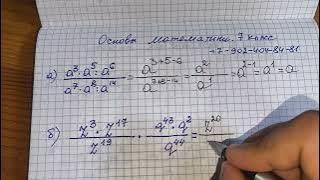 Основы математики. 7 класс
+7-902-404-84-81
а) a³·a⁵:a⁶ / a⁷·a⁸:a¹⁴ = a³⁺⁵⁻⁶ / a⁷⁺⁸⁻¹⁴ = a² / a¹ = a²⁻¹ = a¹ = a
б) z³·z¹⁷ / z¹⁹ · q⁴³·q² / q⁴⁴ = z²⁰